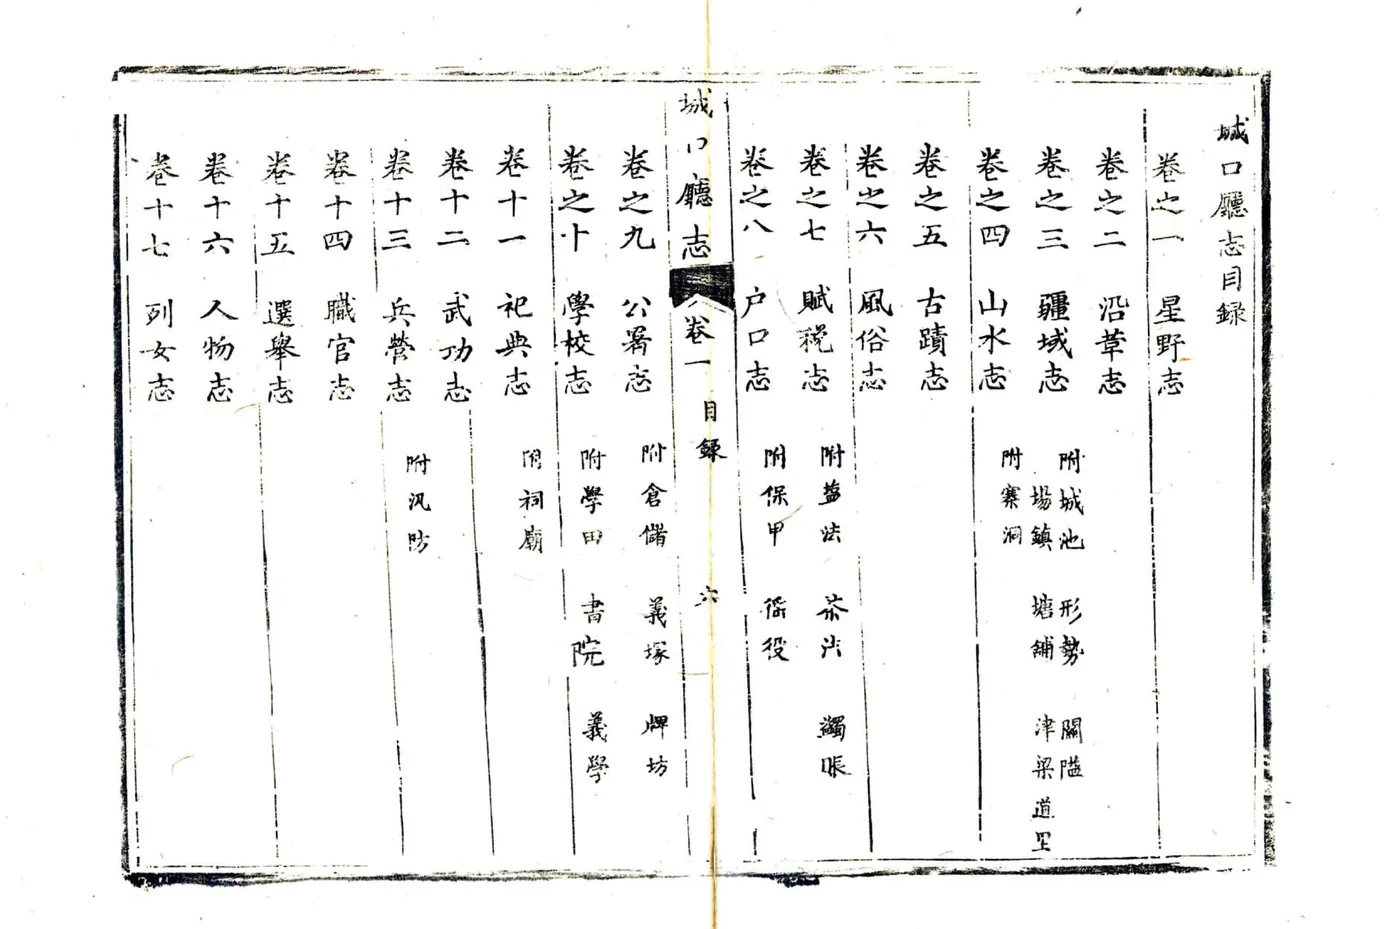 城口廳志目録
卷之一 星野志
卷之二 沿革志
卷之三 疆域志 附城池 形勢 關隘
場鎮 塘舖 津梁 道里
卷之四 山水志 附寨洞
卷之五 古蹟志
卷之六 風俗志
卷之七 賦稅志 附鹽法 茶法 蠲賑
卷之八 户口志 附保甲 徭役
城口廳志 卷一 目録 六
卷之九 公署志 附倉儲 義塚 牌坊
卷之十 學校志 附學田 書院 義學
卷十一 祀典志 附祠廟
卷十二 武功志
卷十三 兵營志 附汛防
卷十四 職官志
卷十五 選舉志
卷十六 人物志
卷十七 列女志